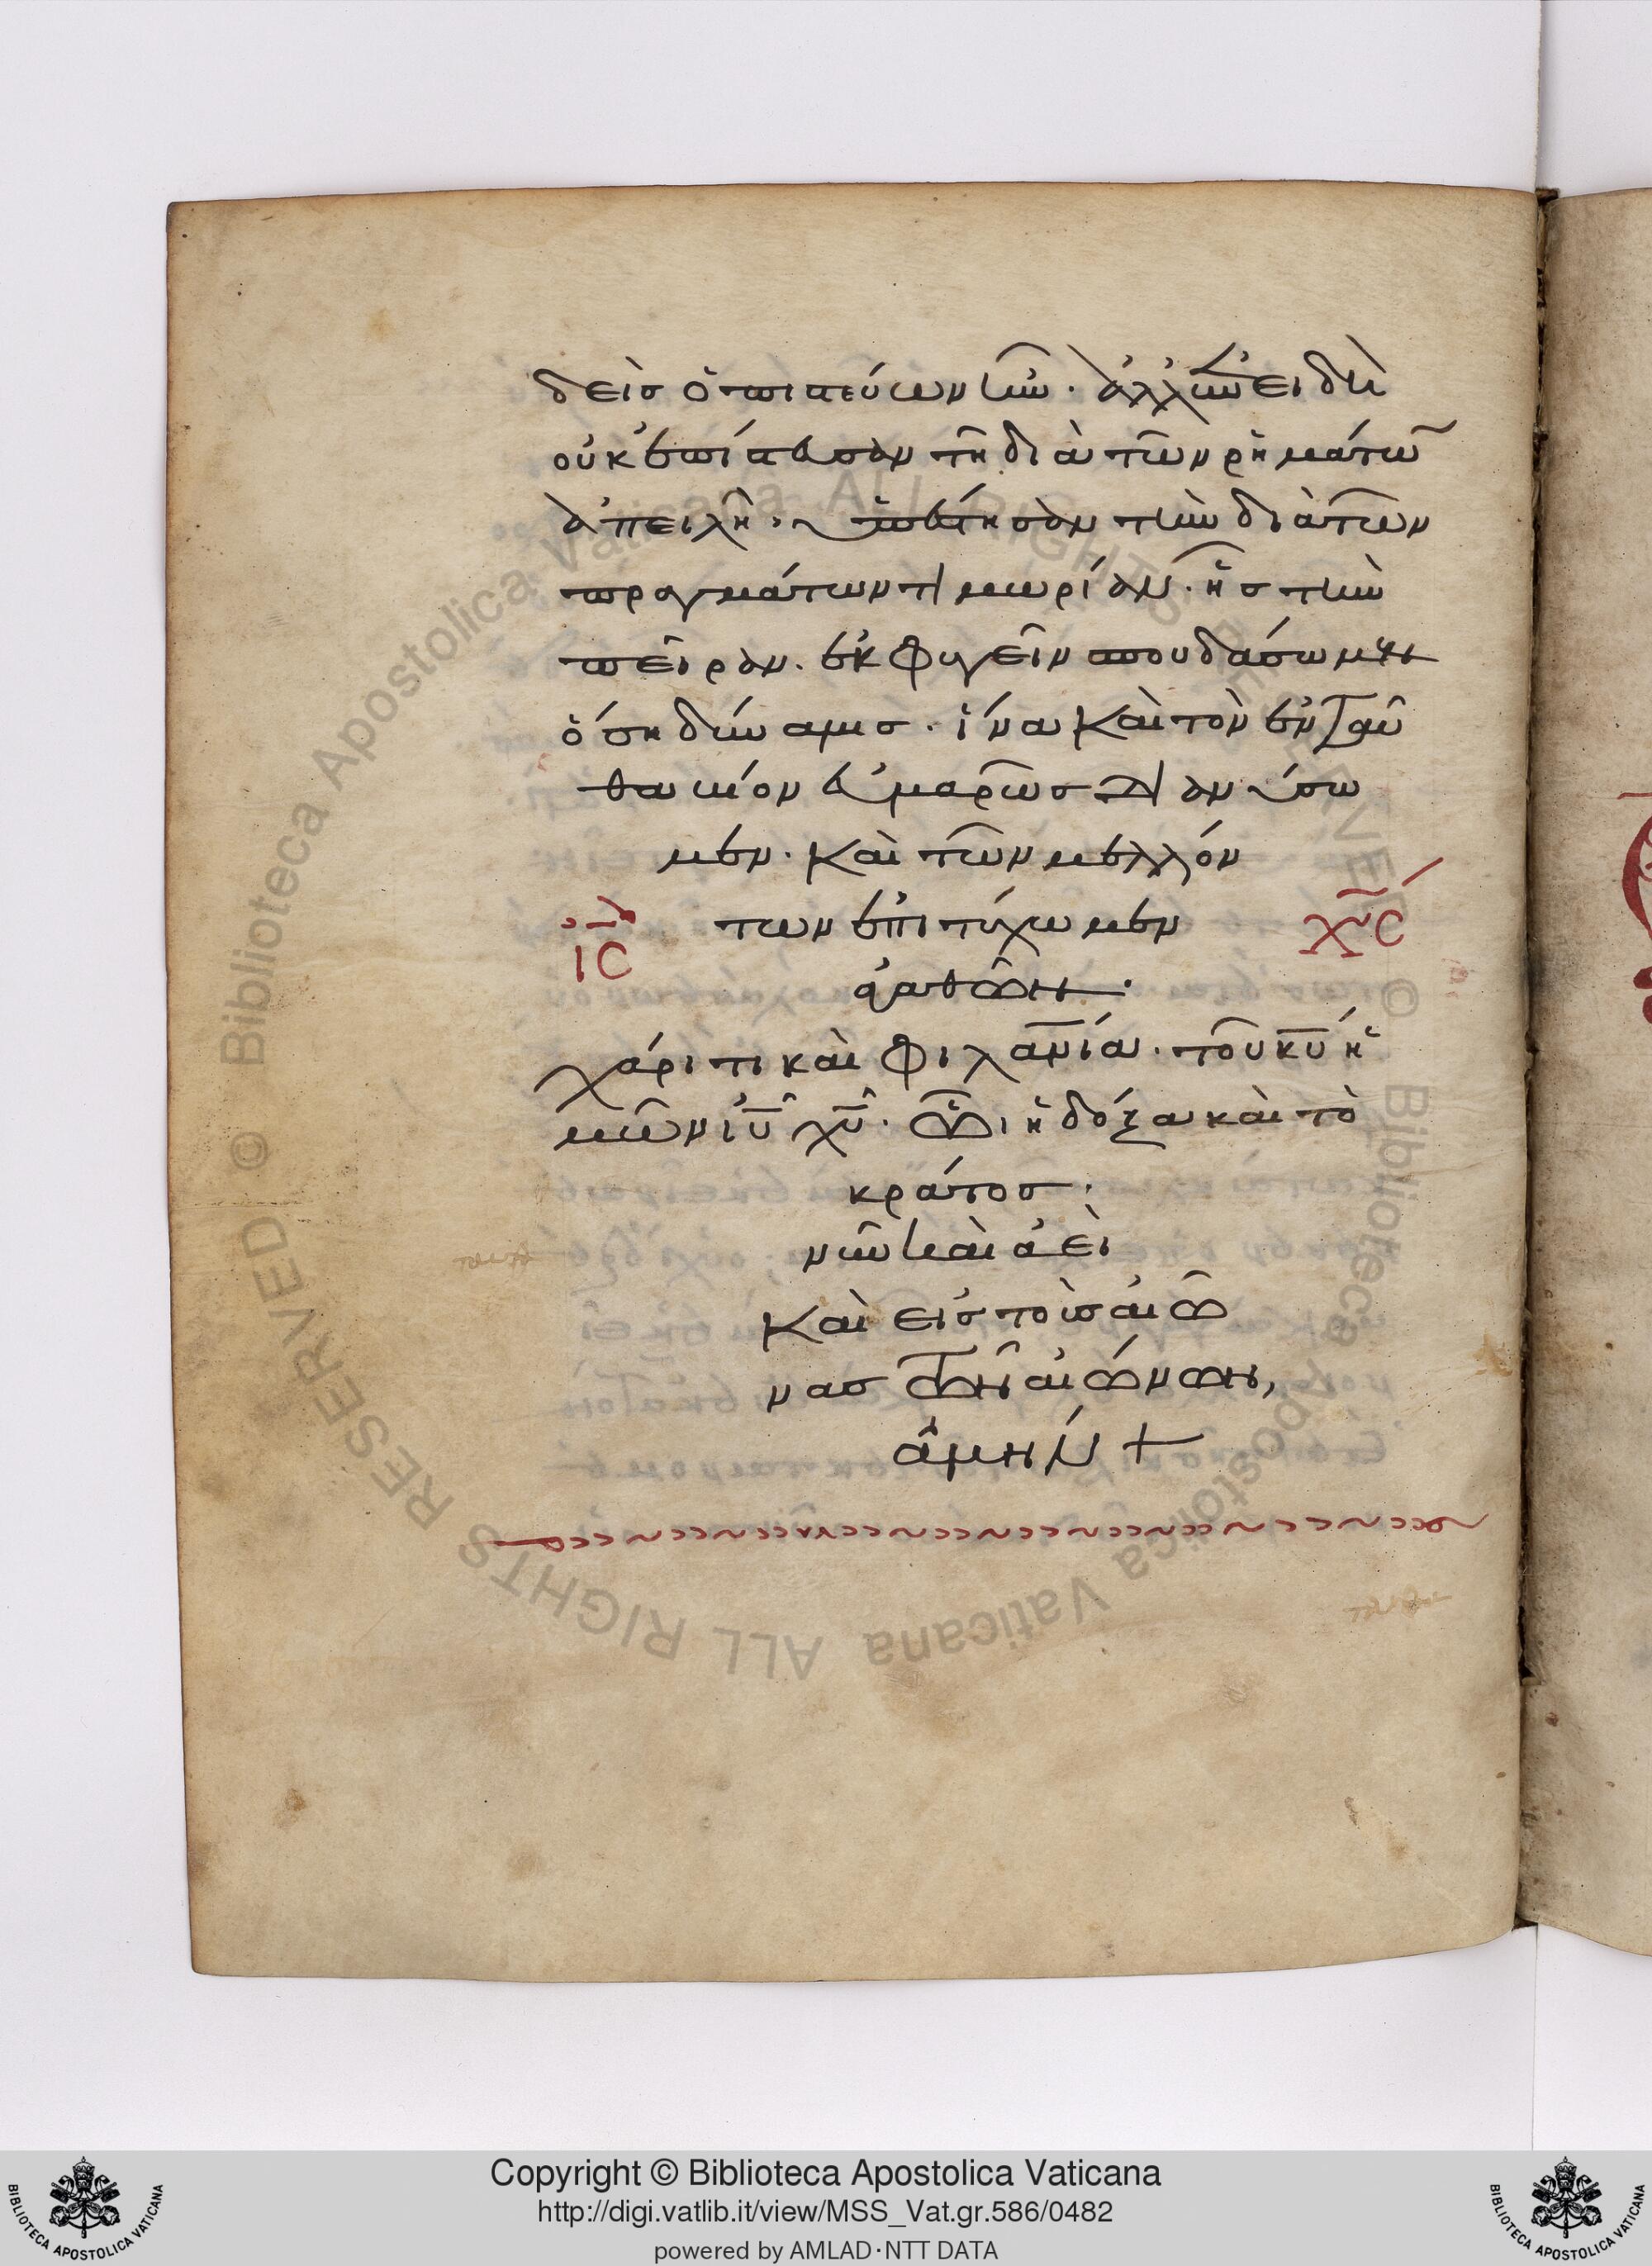 δεὶσ ὁ πιστεύων ἦν. ἀλλ' ἐπειδὴ
οὐκ ἐπίστευσαν τῆ διὰ τῶν ρημάτων
ἀπειλῆ. ὑπέστησαν τὴν διὰ τῶν
πραγμάτων τιμωρίαν. ἧσ τὴν
πεῖραν. ἐκφυγεῖν σπουδάσωμεν
ὅση δύναμισ. ἵνα καὶ τὸν ἐνταῦ
θα βίον εὐμαρῶσ διανύσω
μεν. καὶ τῶν μελλόν
ΙC των ἐπιτύχωμεν ΧC
ἀγαθῶν.
χάριτι καὶ φιλανίαι. τοῦ κυ ἡ
μῶν ιυ χυ. ὧι ἡ δόξα καὶ τὸ
κράτοσ.
νῦν καὶ ἀεὶ
καὶ εἰσ τοὺσ αἰῶ
νασ τῶν αἰώνων,
ἀμήν +
Copyright © Biblioteca Apostolica Vaticana
http://digi.vatlib.it/view/MSS_Vat.gr.586/0482
powered by AMLAD·NTT DATA
BIBLIOTECA APOSTOLICA VATICANA
BIBLIOTECA APOSTOLICA VATICANA
Biblioteca Apostolica Vaticana ALL RIGHTS RESERVED ©
Biblioteca Apostolica Vaticana ALL RIGHTS RESERVED ©